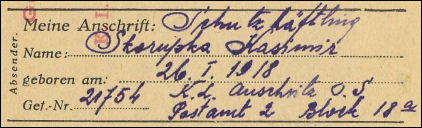 Meine Anschrift: Schutzhäftling
Name: Skorupka Kasimir
geboren am: 26. I. 1918
Gef.-Nr. 21754 K.L. Auschwitz O.S.
Postamt 2 Block 18a
Absender: